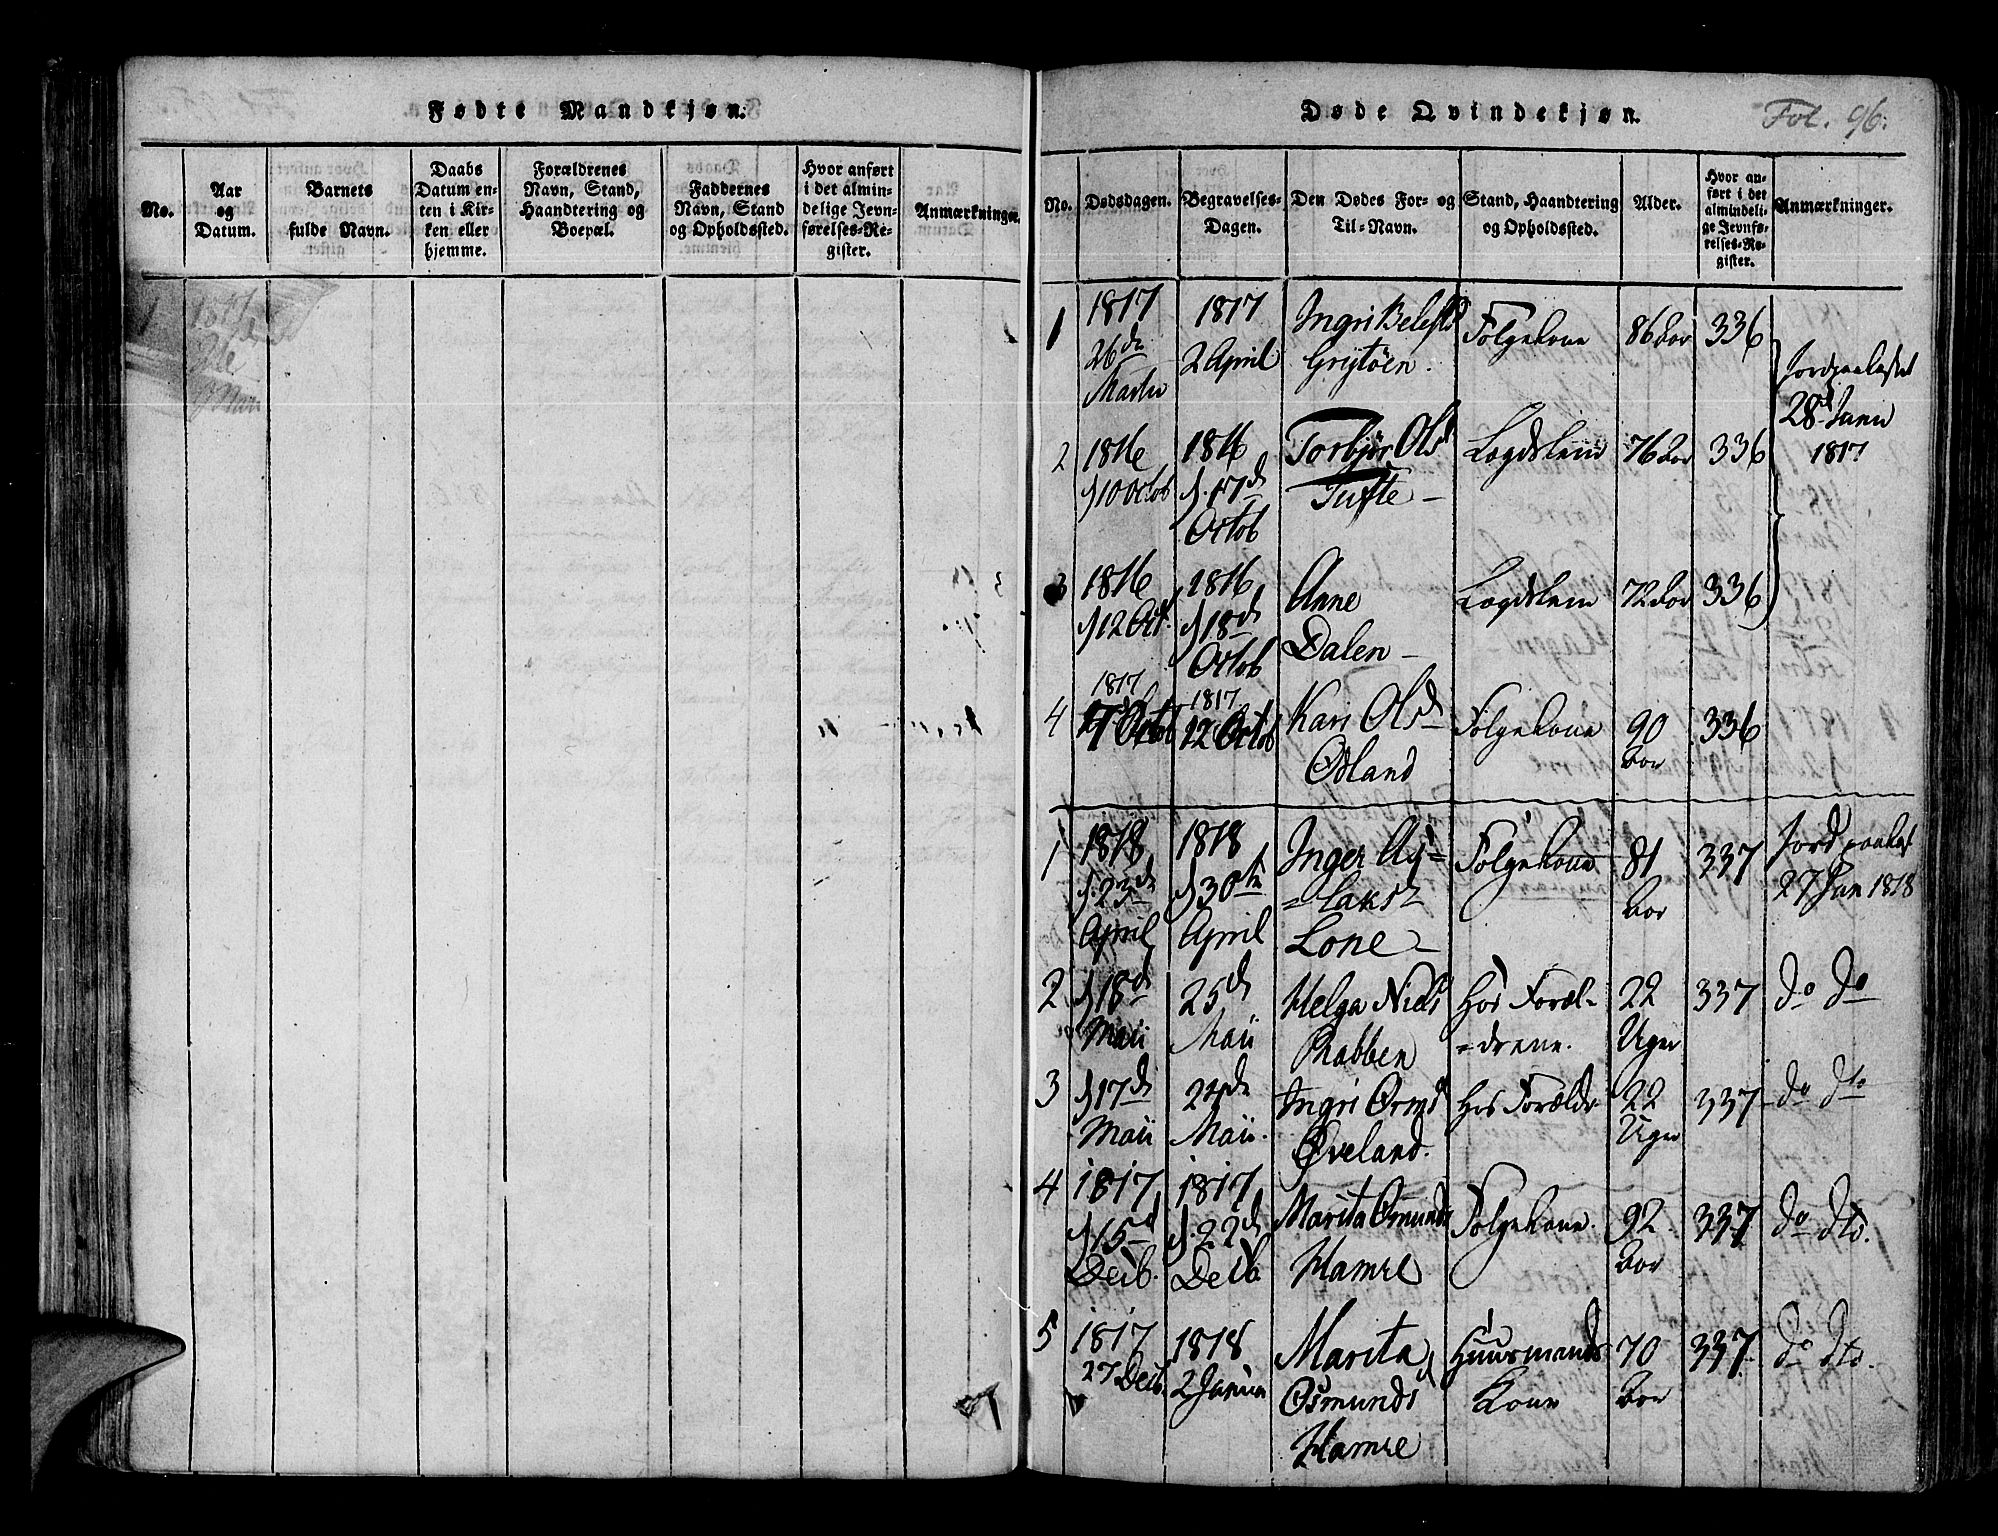 Fødte Mandkjøn.
No.
Aar
og
Datum.
Barnets
fulde Navn.
Daabs
Datum en-
ten i Kir-
ken eller
hjemme.
Forældrenes
Navn, Stand,
Haandtering og
Boepæl.
Faddernes
Navn, Stand
og Opholdssted.
Hvor anført
i det almin-
delige Jevn-
førelses-Re-
gister.
Anmærkninger.
Døde Qvindekjøn.
Fol. 96.
No.
Dødsdagen.
Begravelses-
Dagen.
Den Dødes For- og
Til-Navn.
Stand, Haandtering
og Opholdssted.
Alder.
Hvor an-
ført i det
almindeli-
ge Jevnfø-
relses-Re-
gister.
Anmærkninger.
1
1817
26de
Martii
1817
2 April
Ingri
Grytøen.
Folgekone
86 Aar
336
28d Junii
1817
2
1816
d 10 Octob
1816
d. 17d
Octob
Torbjør Olsd
Tufte
Lægdslem
76 Aar
336
3
1816
d 12 Oct.
1816
d 18d
Octob
Anne
Dalen
Lægdslem
72 Aar
336
4
1817
7 Octob
1817
12 Octob
Kari Olsd
Ødland
Folgekone
90
Aar
336
1
1818
d. 23de
April
1818
d 30te
April
Inger As=
=laksd
Lone
Folgekone
81
Aar
337
27 Jun 1818
2
d 18d
Maii
25d
Maii
Helga Niels
Rabben
Hos Foræl-
=drene.
22
Uger
337
do do
3
d 17de
Maii
24de
Maii.
Ingri Ormsd
Øveland.
Hos Forældr
22
Uger
337
do dto
4
1817
d 15d
Decb.
1817
d. 22d
Decb
Marita Osmunds
Hamre
Folgekone.
92
Aar
337
do dto.
5
1817
27 Decb.
1818
2 Januar
Marita
Osmundsd
Hamre
Huusmands
Kone
70
Aar
337
do dto.